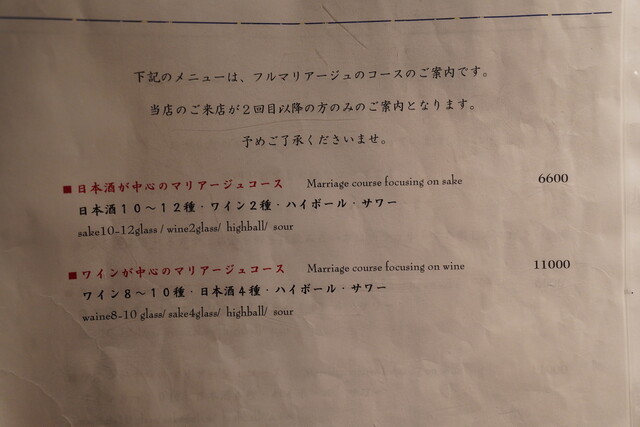 下記のメニューは、フルマリアージュのコースのご案内です。
当店のご来店が２回目以降の方のみのご案内となります。
予めご了承くださいませ。
■日本酒が中心のマリアージュコース Marriage course focusing on sake 6600
日本酒１０～１２種・ワイン２種・ハイボール・サワー
sake10-12glass / wine2glass/ highball/ sour
■ワインが中心のマリアージュコース Marriage course focusing on wine 11000
ワイン８～１０種・日本酒４種・ハイボール・サワー
waine8-10 glass/ sake4glass/ highball/ sour